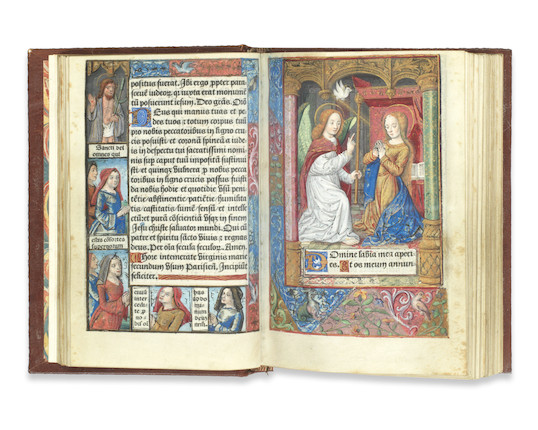 positus fuerat. Ibi ergo ppter para
sceue iudeoꝝ q; iuxta erat monume
tū posuerunt iesum. Deo gr̄as. Orō
Deus qui manus tuas et pe
des tuos z totum corpus tuū
pro nobis peccatoribus in ligno cru
cis posuisti et coronā spineā a iude
is in despectu tui sacatissimi nomi
nis sup caput tuū impositā sustinui
sti et quinqꝫ vulnera p nobis pecca
toribus in ligno crucis passus fuisti
da nobis hodie et quotidie vsū peni
tentie abstinentie patiētie humili
tatis castitatis lumē sensū et intelle
ctū et purā cōscientiā vsqꝫ in finem
Jesu christe saluator mundi. Qui cū
patre et spiritu sancto viuis et regnas
deus. Per oīa secula seculoꝝ. Amen.
Hore intemerate virginis marie
secundum vsum Parisieñ. Incipiūt
feliciter.
Sancti dei
omnes qui
estis cōsortes
supernorum
ciuiū
inter
cedi
te p
no
bis
Domine labia mea aperi
es. Et os meum annun